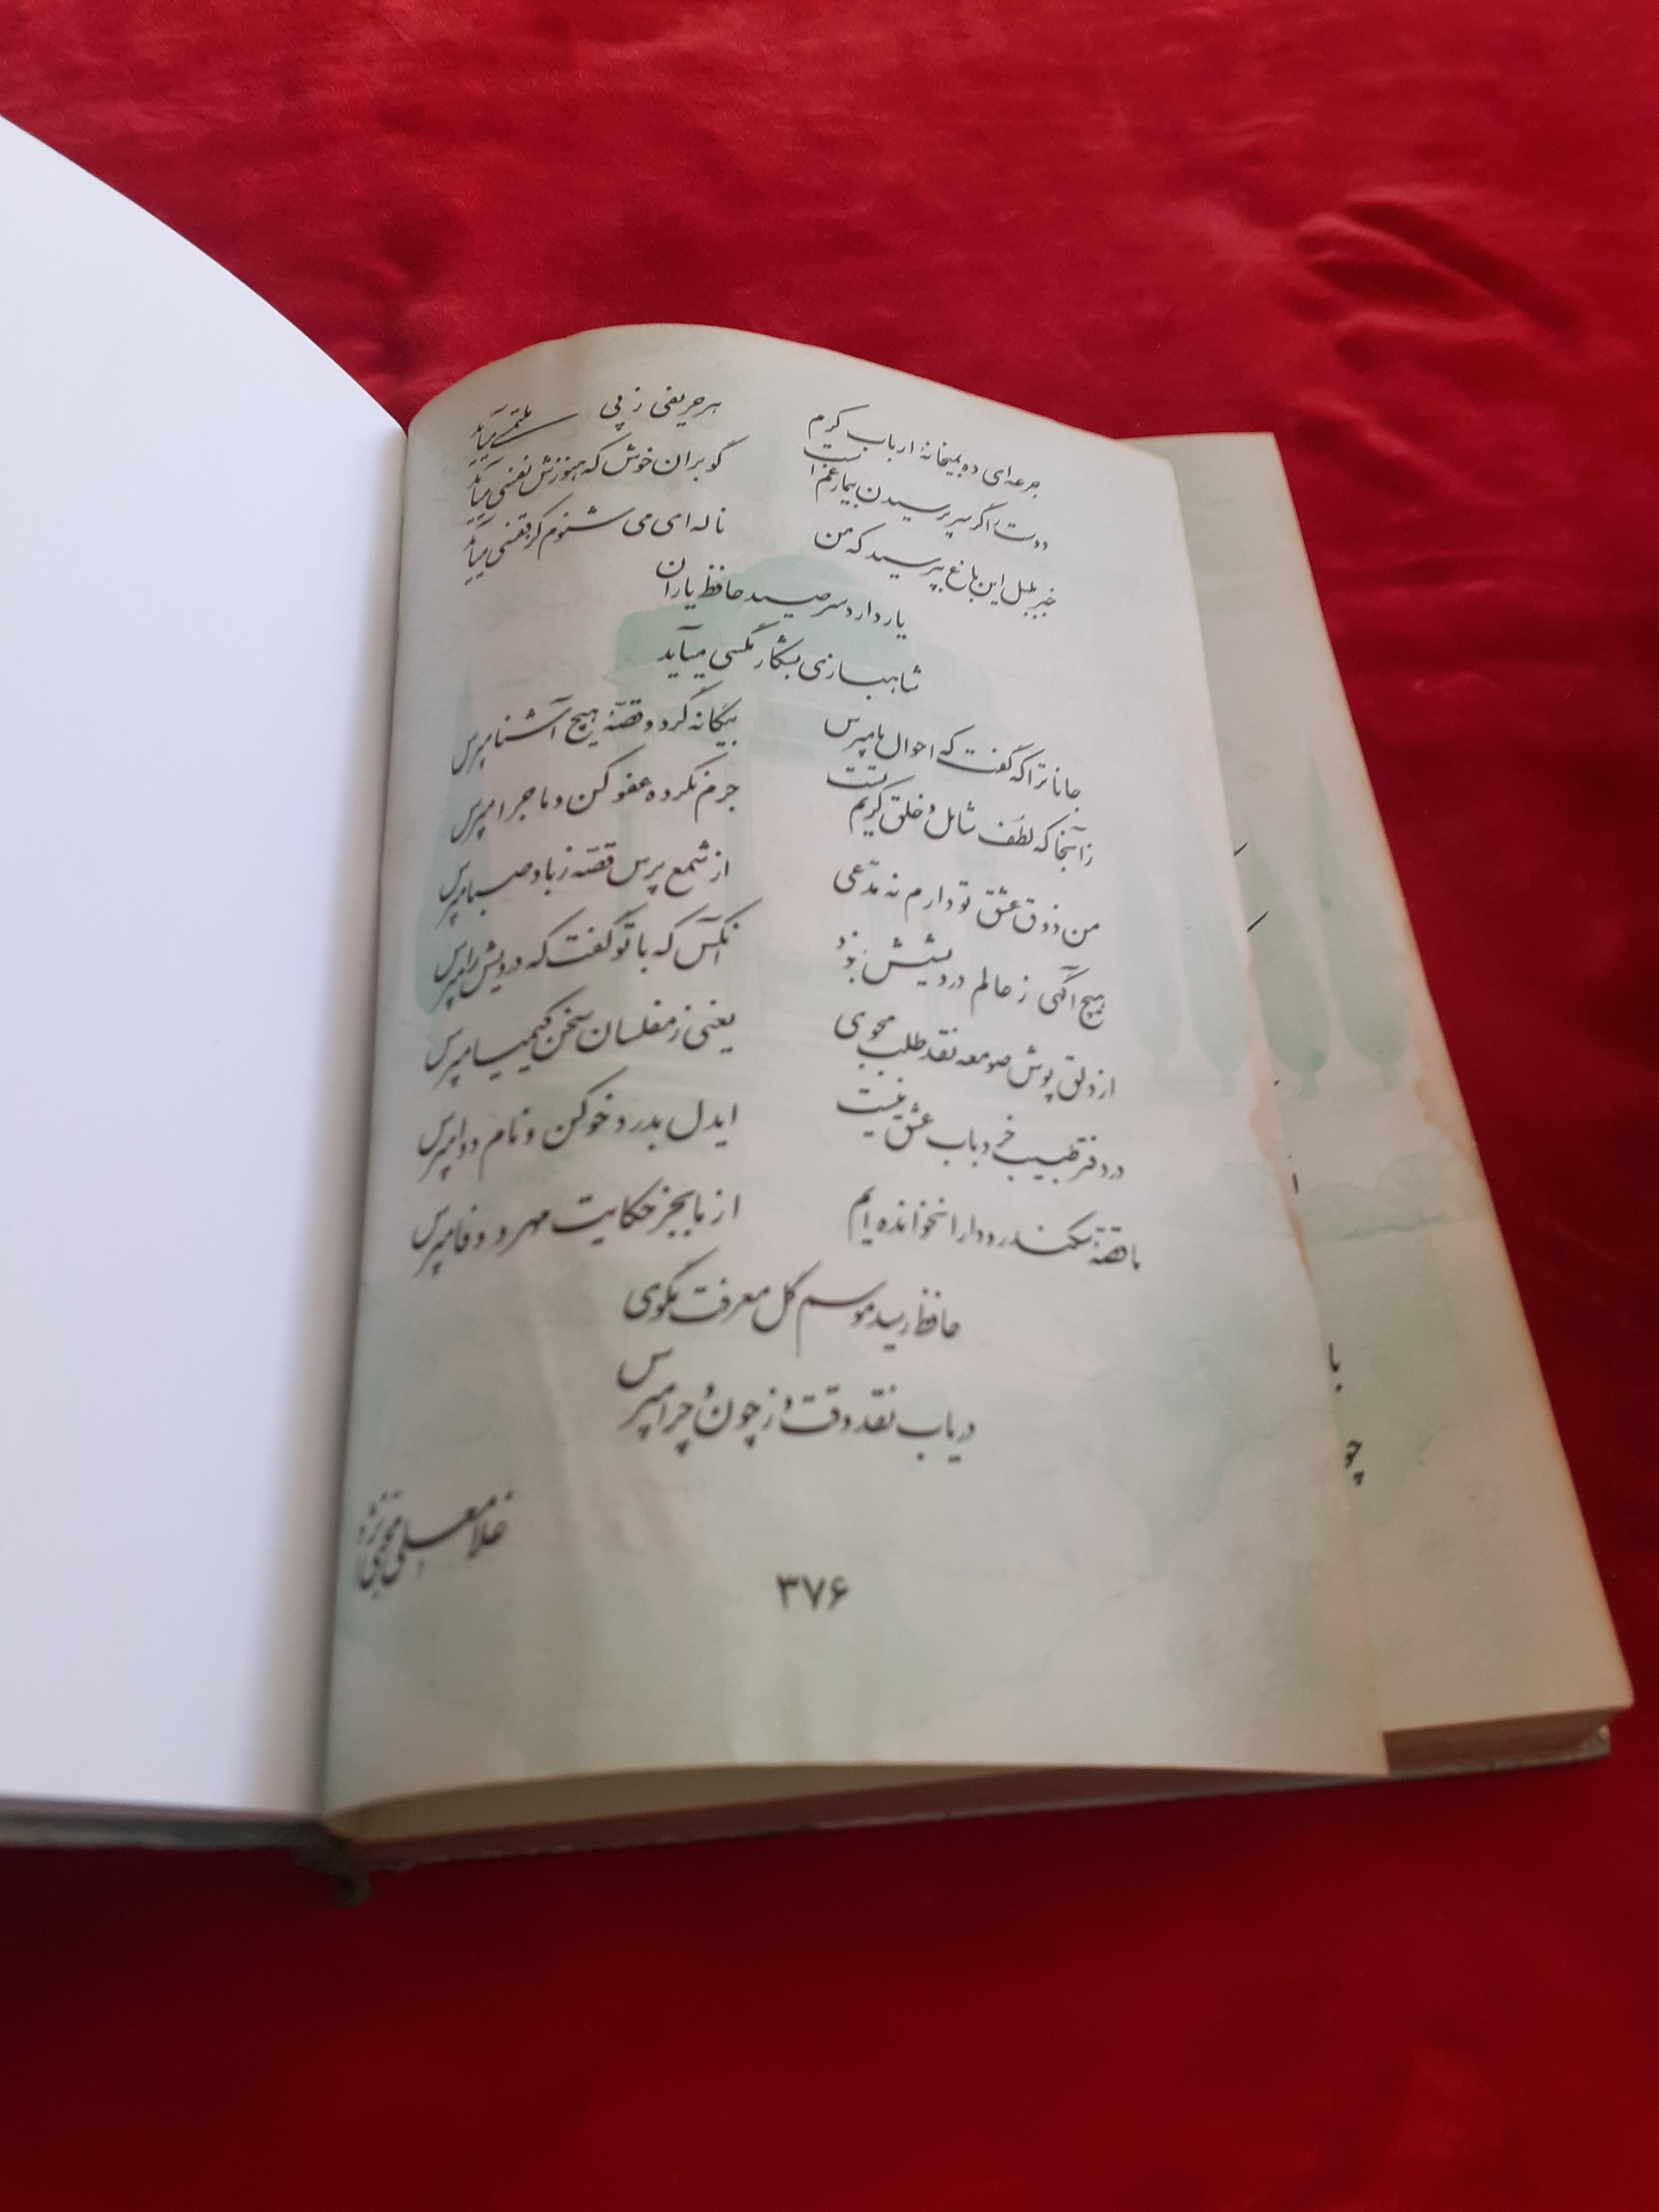 جرعه‌ای ده بمیخانهٔ ارباب کرم هر حریفی ز پی ملتمسی میآید
دوست را گر سر پرسیدن بیمار غم است گو بران خوش که هنوزش نفسی میآید
خبر بلبل این باغ بپرسید که من ناله‌ای می شنوم کز قفسی میآید
یار دارد سر صید حافظ یاران
شاهبازی بشکار مگسی میآید
جانا ترا که گفت که احوال ما مپرس بیگانه گرد و قصّهٔ هیچ آشنا مپرس
زآنجا که لطف شامل و خلق کریم تست جرم نکرده عفو کن و ماجرا مپرس
من ذوق عشق تو دارم نه مدّعی از شمع پرس قصّه ز باد صبا مپرس
هیچ آگهی ز عالم درویشیش نبود آنکس که با تو گفت که درویش را مپرس
از دلق پوش صومعه نقد طلب مجوی یعنی ز مفلسان سخن کیمیا مپرس
در دفتر طبیب خرد باب عشق نیست ایدل بدرد خو کن و نام دوا مپرس
ما قصّهٔ سکندر و دارا نخوانده ایم از ما بجز حکایت مهر و وفا مپرس
حافظ رسید موسم گل معرفت مگوی
دریاب نقد وقت و ز چون و چرا مپرس
غلامعلی
۳۷۶
با
چو